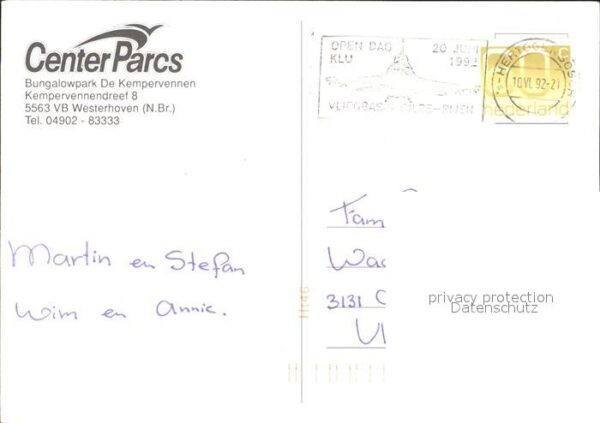 Center Parcs
Bungalowpark De Kempervennen
Kempervennendreef 8
5563 VB Westerhoven (N.Br.)
Tel. 04902 - 83333
OPEN DAG 20 JUNI
KLU 1992
VLIEGBASIS GILZE-RIJEN
's-HERTOGENBOSCH
10.VI.92-21
nederland
Martin en Stefan
Wim en Annie.
Fam
Waa
3131 C
Vl
privacy protection
Datenschutz